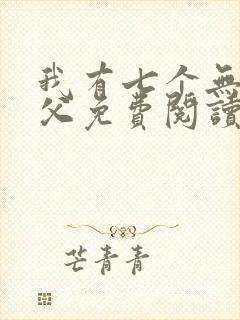 我有七个無
父免費閱讀
芒青青